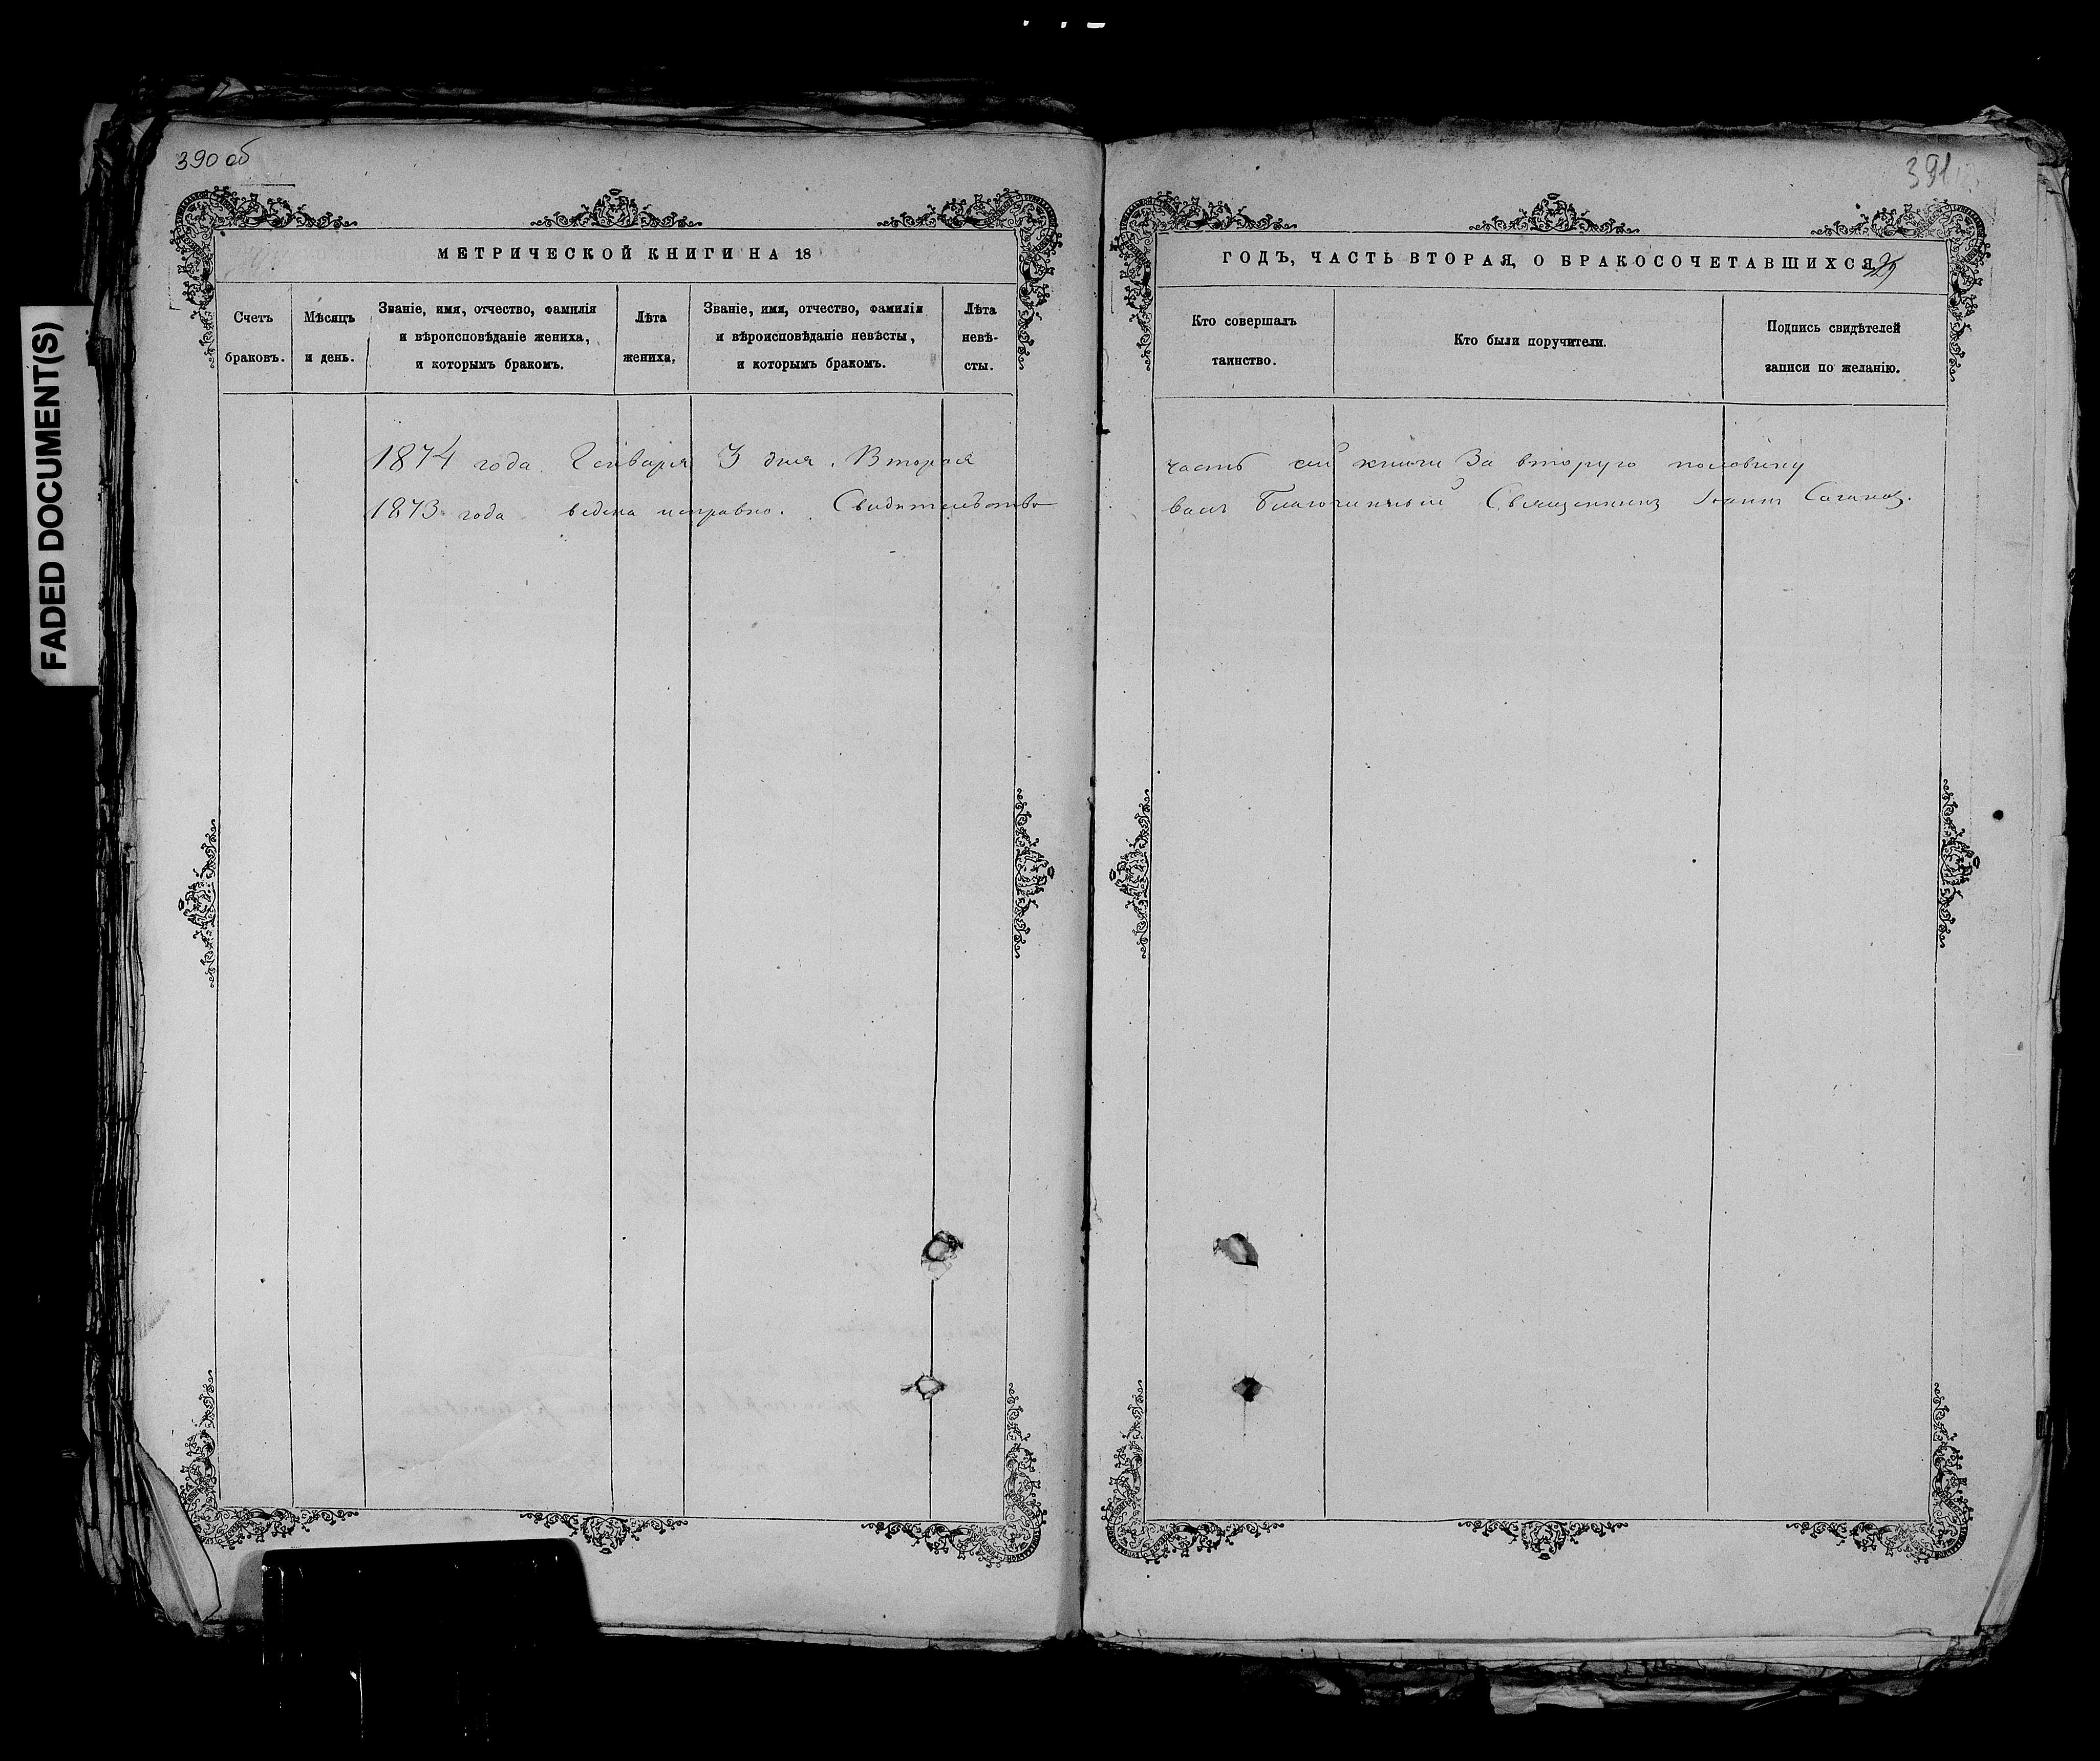 FADED DOCUMENT(S)
390 об
МЕТРИЧЕСКОЙ КНИГИ НА 18
Счетъ браковъ.
Мѣсяцъ и день.
Званіе, имя, отчество, фамилія
и вѣроисповѣданіе жениха,
и которымъ бракомъ.
Лѣта жениха,
Званіе, имя, отчество, фамилія
и вѣроисповѣданіе невѣсты,
и которымъ бракомъ.
Лѣта
невѣ-
сты.
1874 года Генваря 3 дня. Вторая
1873 года ведена исправно. Свидѣтельство
391
ГОДЪ, ЧАСТЬ ВТОРАЯ, О БРАКОСОЧЕТАВШИХСЯ
Кто совершалъ
таинство.
Кто были поручители.
Подпись свидѣтелей
записи по желанію.
часть сей книги за вторую половину
валъ Благочинный Священникъ Іоаннъ